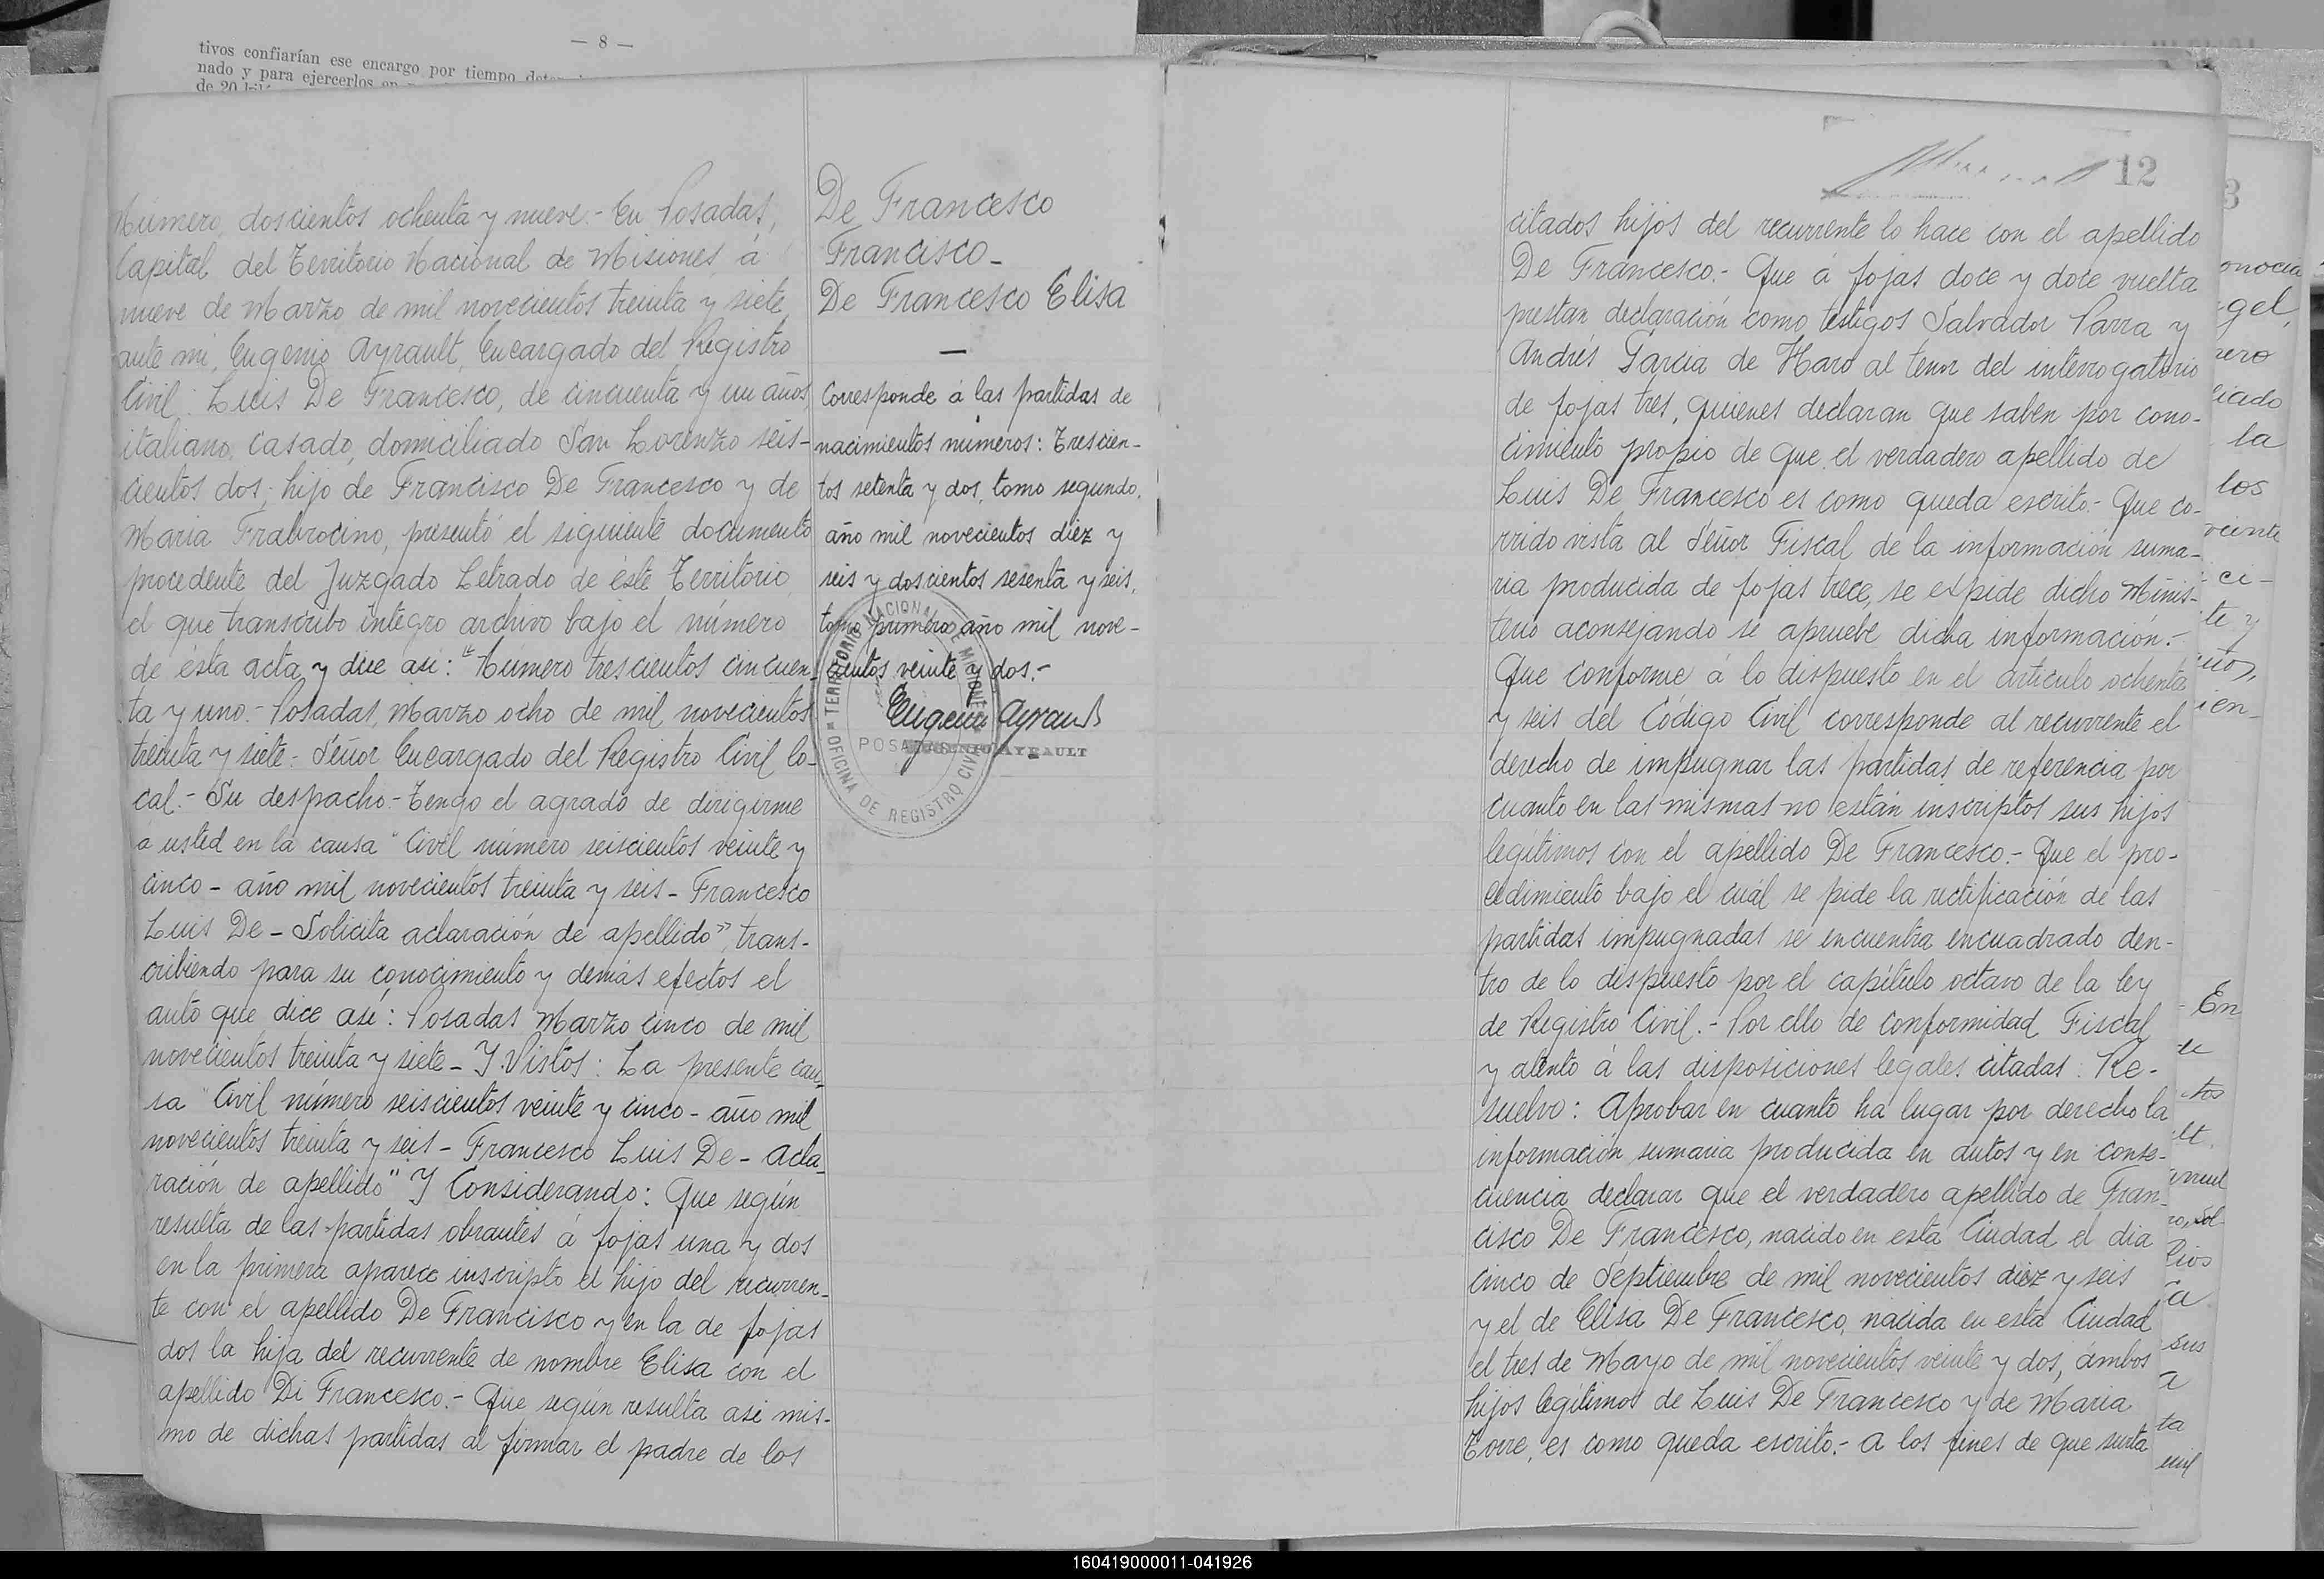 — 8 —
tivos confiarían ese encargo por tiempo
nado y para ejercerlos en
de 20
Número, doscientos ochenta y nueve.- En Posadas,
Capital del Territorio Nacional de Misiones, á
nueve de Marzo de mil novecientos treinta y siete,
ante mi, Eugenio Ayrault, Encargado del Registro
Civil: Luis De Francesco, de cincuenta y un años,
italiano, casado, domiciliado San Lorenzo seis-
cientos dos, hijo de Francisco De Francesco y de
Maria Frabrocino, presentó el siguiente documento
procedente del Juzgado Letrado de éste Territorio,
el que transcribo integro archivo bajo el número
de ésta acta y dice asi: "Número trescientos cincuen-
ta y uno.- Posadas, Marzo ocho de mil novecientos
treinta y siete.- Señor Encargado del Registro Civil lo-
cal.- Su despacho.- Tengo el agrado de dirigirme
á usted en la causa "Civil número seiscientos veinte y
cinco - año mil novecientos treinta y seis - Francesco
Luis De - Solicita aclaración de apellido", trans-
cribiendo para su conocimiento y demás efectos el
auto que dice asi: Posadas Marzo cinco de mil
novecientos treinta y siete - Y Vistos: La presente cau-
sa "Civil número seiscientos veinte y cinco - año mil
novecientos treinta y seis - Francesco Luis De - Acla-
ración de apellido" Y Considerando: Que según
resulta de las partidas obrantes á fojas una y dos
en la primera aparece inscripto el hijo del recurren-
te con el apellido De Francisco y en la de fojas
dos la hija del recurrente de nombre Elisa con el
apellido Di Francesco.- Que según resulta asi mis-
mo de dichas partidas al firmar el padre de los
De Francesco
Francisco -
De Francesco Elisa
—
Corresponde á las partidas de
nacimientos números: Trescien-
tos setenta y dos, tomo segundo,
año mil novecientos diez y
seis y doscientos sesenta y seis,
tomo primero año mil nove-
cientos veinte y dos.-
Eugenio Ayrault
EUGENIO AYRAULT
TERRITORIO NACIONAL DE MISIONES
OFICINA DE REGISTRO CIVIL
POSADAS
12
citados hijos del recurrente lo hace con el apellido
De Francesco.- Que á fojas doce y doce vuelta
prestan declaración como testigos Salvador Parra y
Andrés Garcia de Haro al tenor del interrogatorio
de fojas tres, quienes declaran que saben por cono-
cimiento propio de que el verdadero apellido de
Luis De Francesco es como queda escrito.- Que co-
rrido vista al Señor Fiscal de la información suma-
ria producida de fojas trece, se expide dicho Minis-
terio aconsejando se apruebe dicha información.-
Que conforme á lo dispuesto en el articulo ochenta
y seis del Código Civil corresponde al recurrente el
derecho de impugnar las partidas de referencia por
cuanto en las mismas no están inscriptos sus hijos
legítimos con el apellido De Francesco.- Que el pro-
cedimiento bajo el cuál se pide la rectificación de las
partidas impugnadas se encuentra encuadrado den-
tro de lo dispuesto por el capítulo octavo de la ley
de Registro Civil.- Por ello de conformidad Fiscal
y atento á las disposiciones legales citadas: Re-
suelvo: Aprobar en cuanto ha lugar por derecho la
información sumaria producida en autos y en conse-
cuencia declarar que el verdadero apellido de Fran-
cisco De Francesco, nacido en esta Ciudad el dia
cinco de Septiembre de mil novecientos diez y seis
y el de Elisa De Francesco, nacida en esta Ciudad
el tres de Mayo de mil novecientos veinte y dos, ámbos
hijos legítimos de Luis De Francesco y de Maria
Torre, es como queda escrito.- A los fines de que surta
3
gel,
la
los
te y
ien-
En
te
tos
sus
a
ta
mil
160419000011-041926